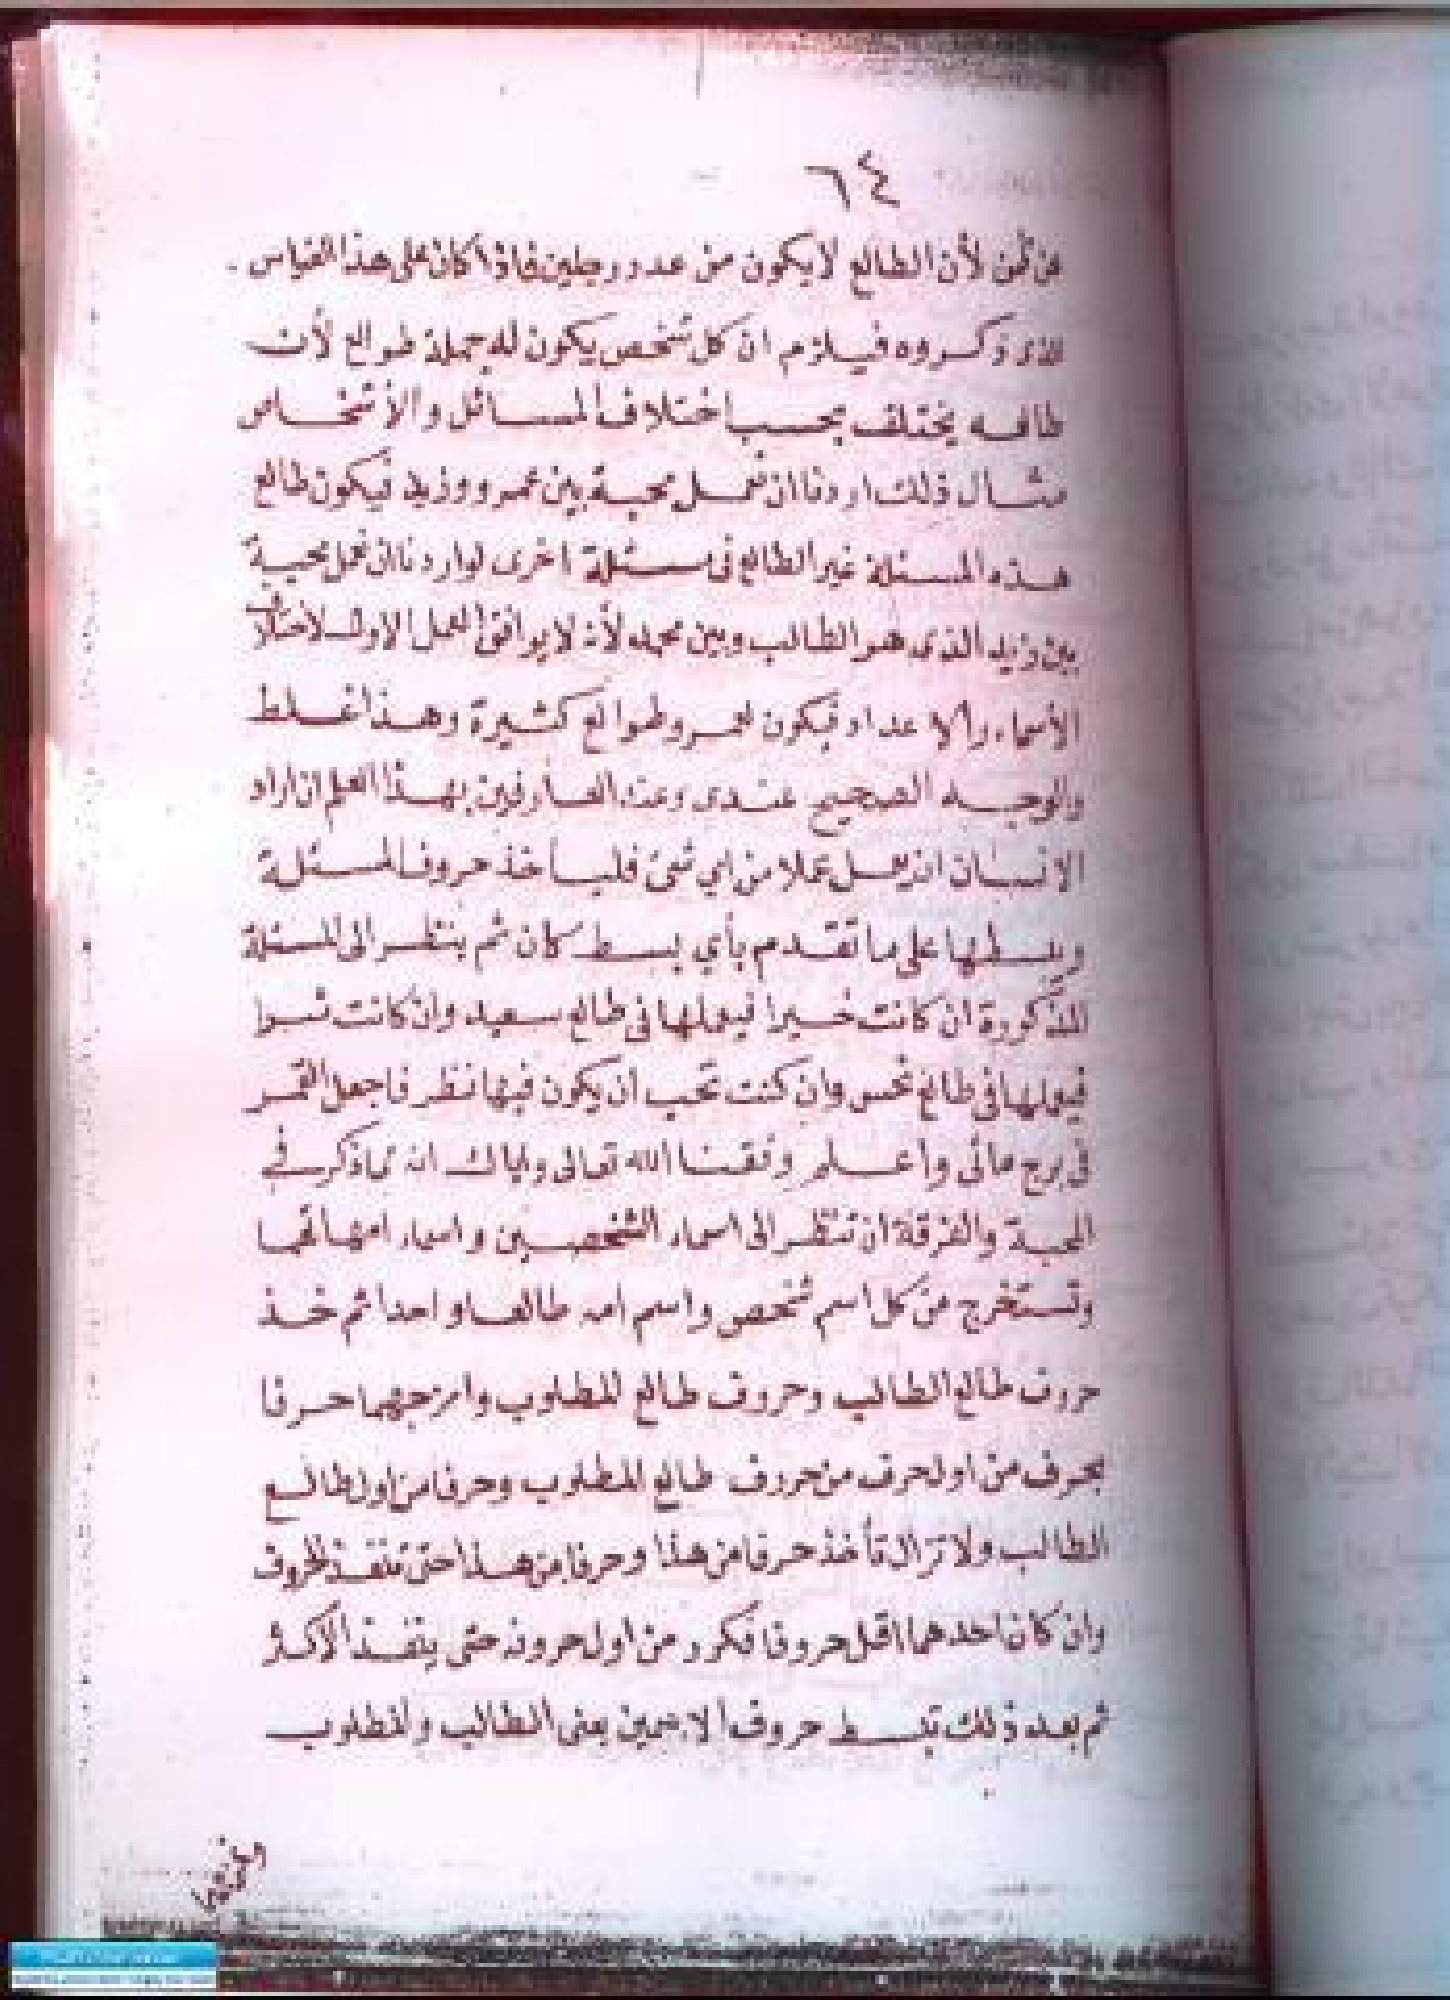 ٦٤
لأن الطالع لا يكون من عدد رجلين فاذا كان على هذا القياس
الذى ذكروه فيلزم ان كل شخص يكون له جملة طوالع لأن
طالعه يختلف بحسب اختلاف المسائل والأشخاص
مثال ذلك اردنا ان نعمل محبة بين عمرو وزيد فيكون طالع
هذه المسئلة غير الطالع فى مسئلة اخرى لو اردنا ان نعمل محبة
بين زيد الذى هو الطالب وبين محمد لأنه لا يوافق العمل الاول لاختلاف
الأسماء والاعداد فيكون لعمرو طوالع كثيرة وهذا غلط
والوجه الصحيح عندى وعند العارفين بهذا العلم ان اراد
الانسان ان يعمل عملا من اي شئ فليأخذ حروف المسئلة
ويبسطها على ما تقدم بأي بسط كان ثم ينظر الى المسئلة
المذكورة ان كانت خيرا فيعملها فى طالع سعيد وان كانت شرا
فيعملها فى طالع نحس وان كنت تحب أن يكون فيها نظر فاجعل القمر
فى برج مائى واعلم وفقنا الله تعالى واياك انه مما ذكر فى
المحبة والفرقة ان تنظر الى اسماء الشخصين واسماء امهاتهما
وتستخرج من كل اسم شخص واسم امه طالعا واحدا ثم خذ
حروف طالع الطالب وحروف طالع المطلوب وامزجهما حرفا
بحرف من اول حرف من حروف طالع المطلوب وحرفا من اول طالع
الطالب ولا تزال تأخذ حرفا من هذا وحرفا من هذا حتى تنفذ الحروف
وان كان احدهما اقل حروفا فكرر من اول حروفه حتى ينفذ الأكثر
ثم بعد ذلك تبسط حروف الاسمين يعنى الطالب والمطلوب